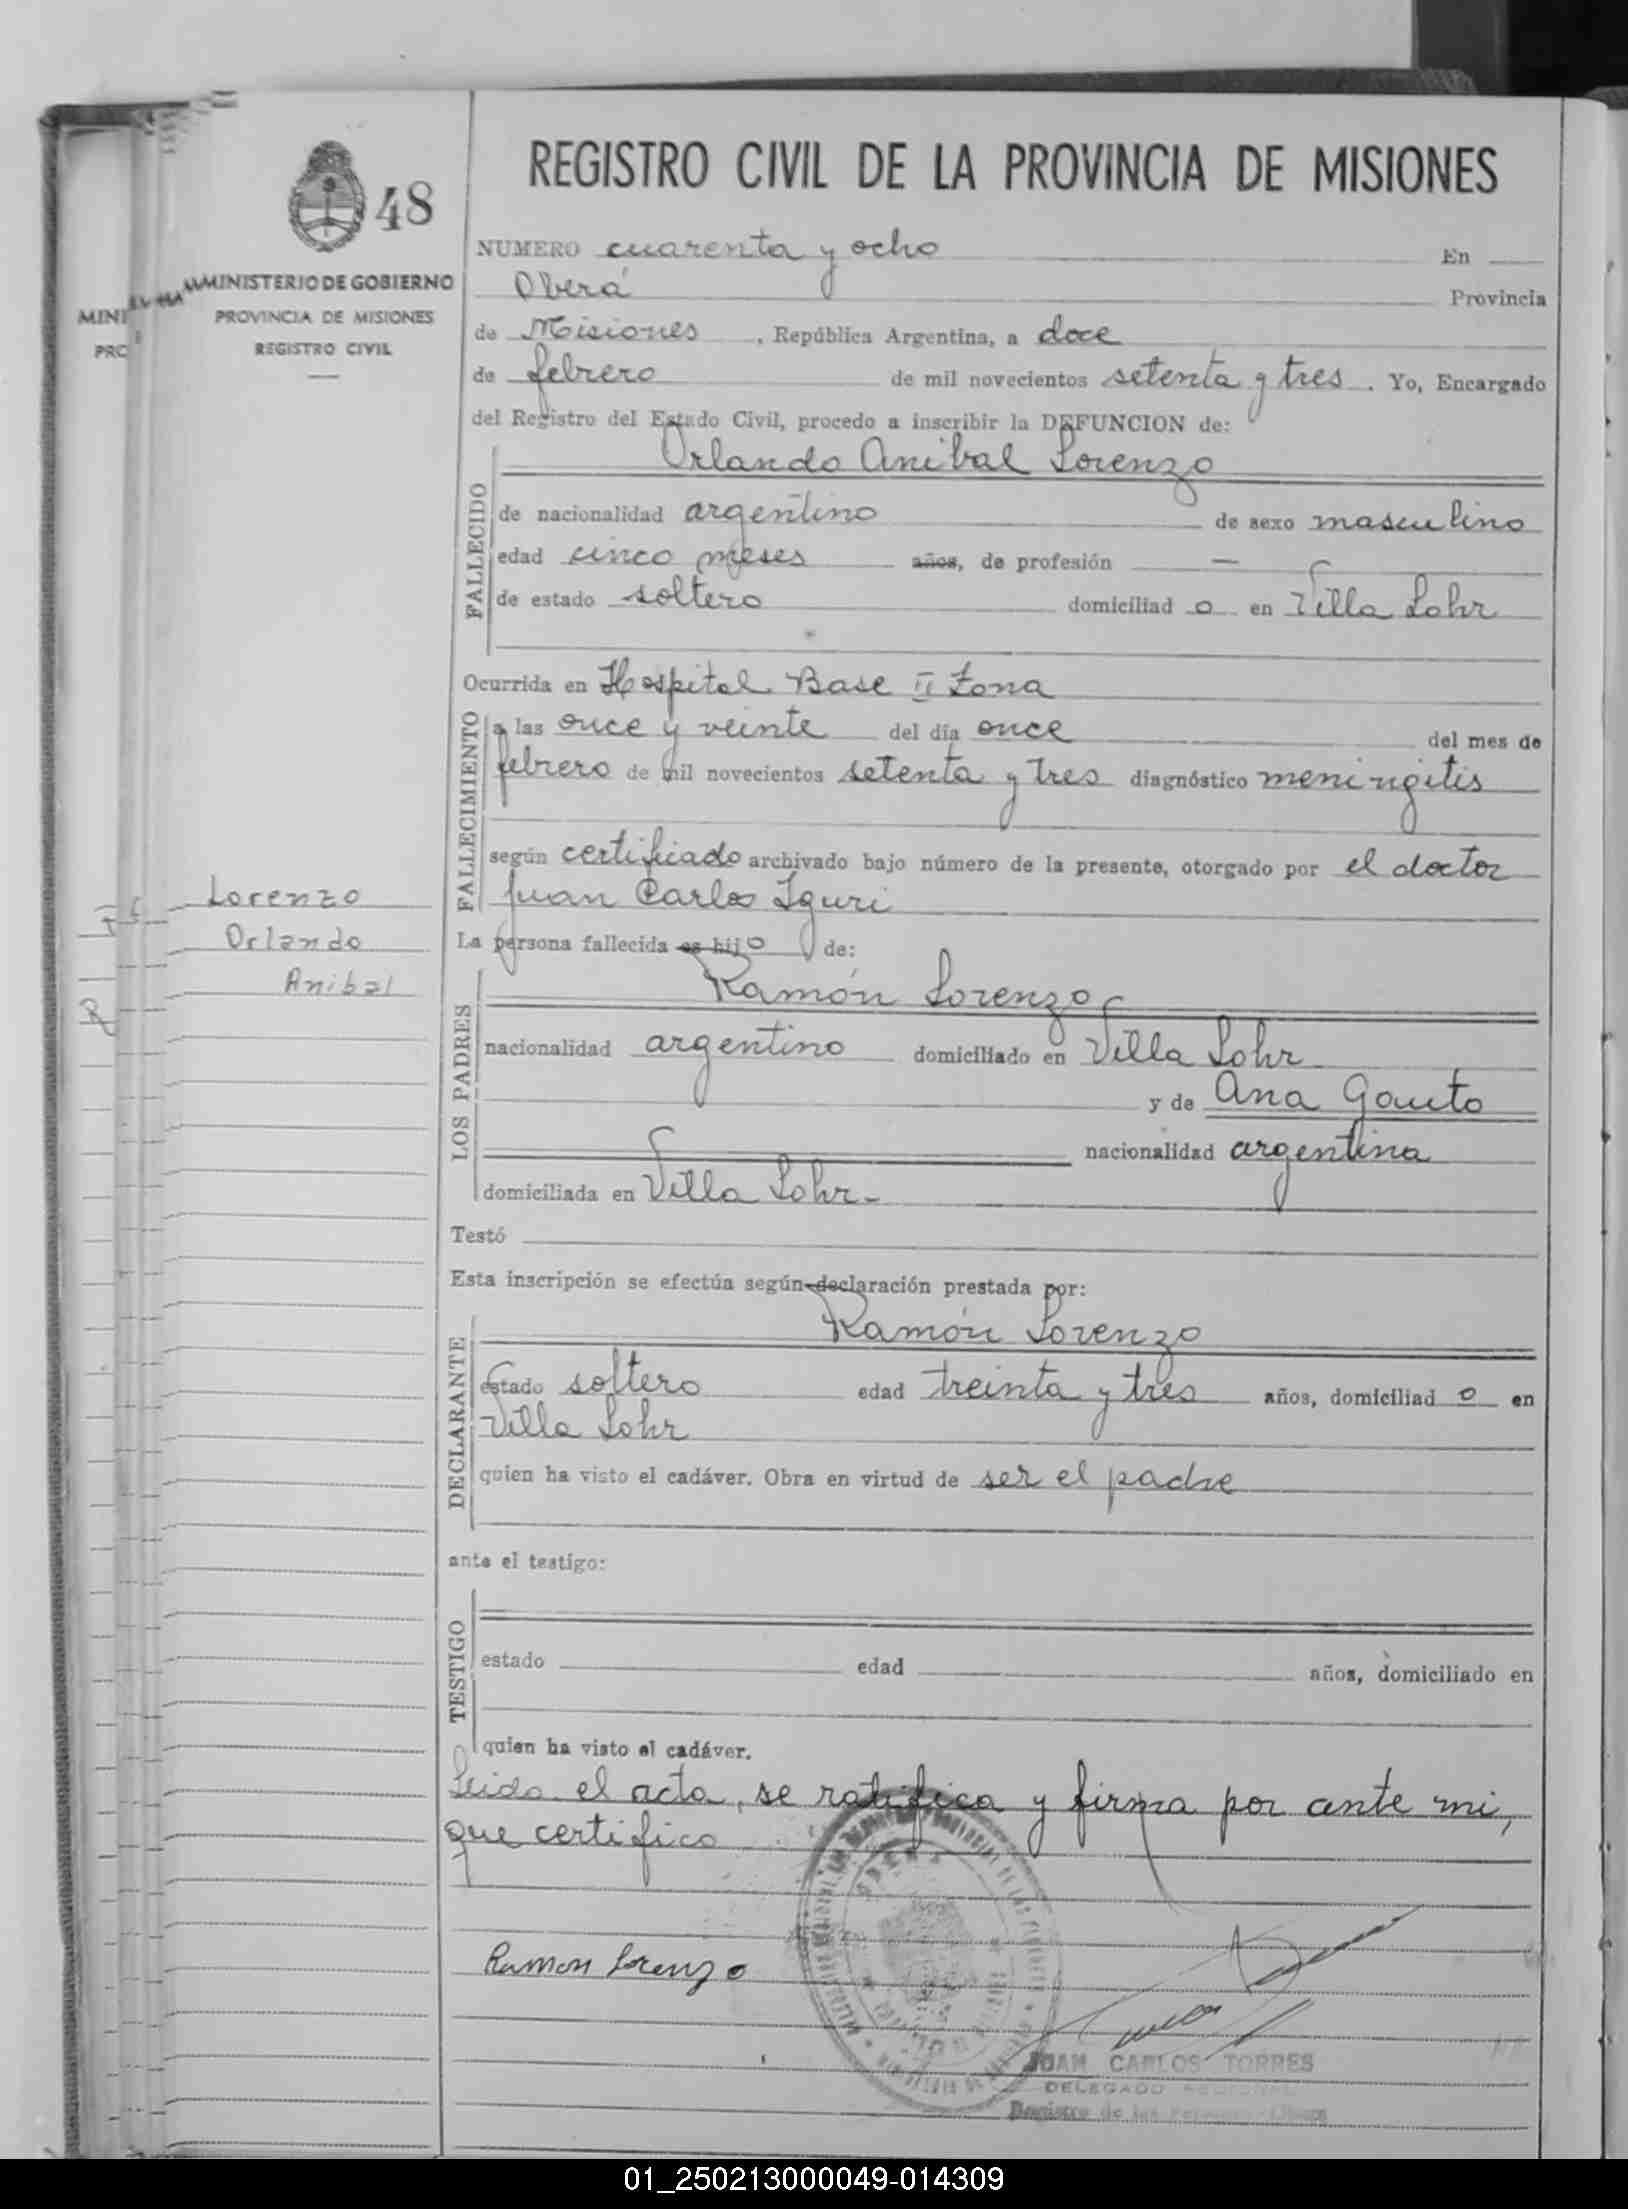 REGISTRO CIVIL DE LA PROVINCIA DE MISIONES
48
MINISTERIO DE GOBIERNO
PROVINCIA DE MISIONES
REGISTRO CIVIL
MINI
PRO
NUMERO cuarenta y ocho En
Oberá Provincia
de Misiones, República Argentina, a doce
de febrero de mil novecientos setenta y tres. Yo, Encargado
del Registro del Estado Civil, procedo a inscribir la DEFUNCION de:
FALLECIDO
Orlando Anibal Lorenzo
de nacionalidad argentino de sexo masculino
edad cinco meses años, de profesión —
de estado soltero domiciliad o en Villa Lohr
Ocurrida en Hospital Base II Zona
FALLECIMIENTO
a las once y veinte del día once del mes de
febrero de mil novecientos setenta y tres diagnóstico meningitis
según certificado archivado bajo número de la presente, otorgado por el doctor
Juan Carlos Iguri
Lorenzo
Orlando
Anibal
La persona fallecida es hijo de:
LOS PADRES
Ramón Lorenzo
nacionalidad argentino domiciliado en Villa Lohr
y de Ana Gauto
nacionalidad argentina
domiciliada en Villa Lohr-
Testó
Esta inscripción se efectúa según declaración prestada por:
DECLARANTE
Ramón Lorenzo
estado soltero edad treinta y tres años, domiciliad o en
Villa Lohr
quien ha visto el cadáver. Obra en virtud de ser el padre
ante el testigo:
TESTIGO
estado edad años, domiciliado en
quien ha visto el cadáver.
Leida el acta, se ratifica y firma por ante mi,
que certifico
Ramon Lorenzo
JUAN CARLOS TORRES
DELEGADO REGIONAL
Registro de las Personas
01_250213000049-014309